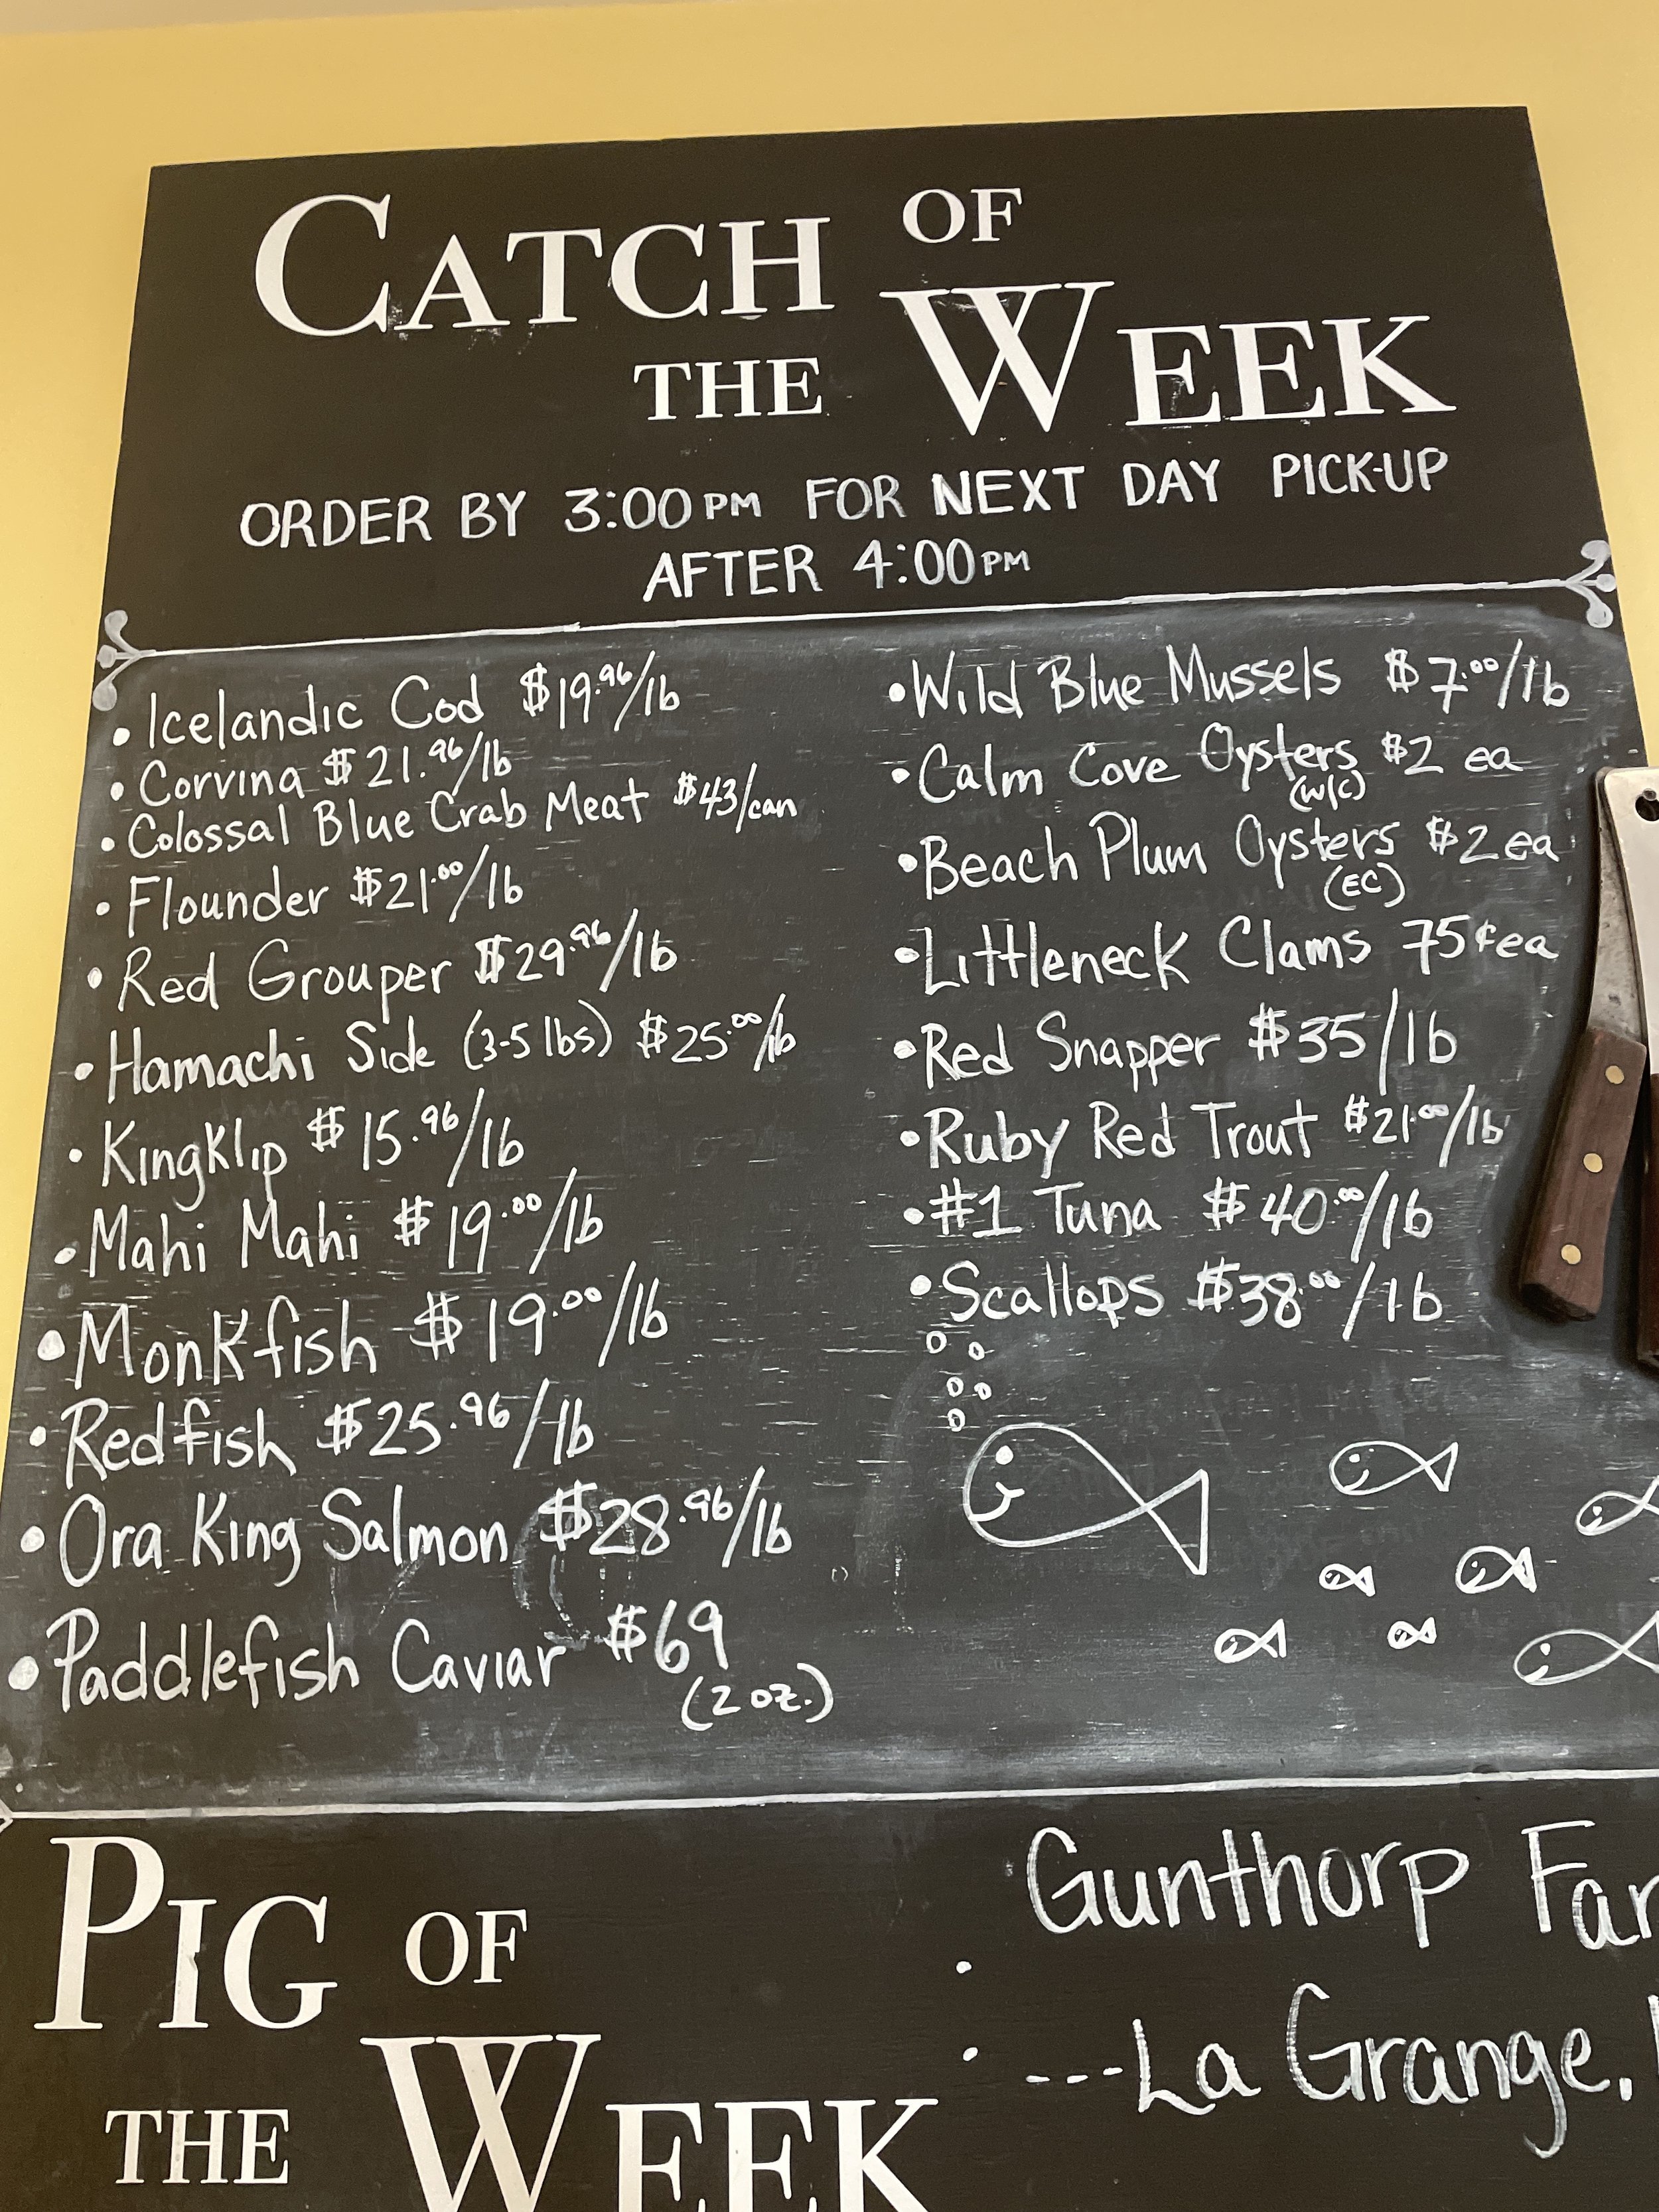 CATCH OF
THE WEEK
ORDER BY 3:00PM FOR NEXT DAY PICK-UP
AFTER 4:00PM
• Icelandic Cod $19.96/lb
• Corvina $21.96/lb
• Colossal Blue Crab Meat $43/can
• Flounder $21.00/lb
• Red Grouper $29.96/lb
• Hamachi Side (3-5 lbs) $25.00/lb
• Kingklip $15.96/lb
• Mahi Mahi $19.00/lb
• Monkfish $19.00/lb
• Redfish $25.96/lb
• Ora King Salmon $28.96/lb
• Paddlefish Caviar $69
(2 oz.)
• Wild Blue Mussels $7.00/lb
• Calm Cove Oysters $2 ea
(W/C)
• Beach Plum Oysters $2 ea
(EC)
• Littleneck Clams 75¢ ea
• Red Snapper $35/lb
• Ruby Red Trout $21.00/lb
• #1 Tuna $40.00/lb
• Scallops $38.00/lb
PIG OF
THE WEEK
Gunthorp
---La Grange.